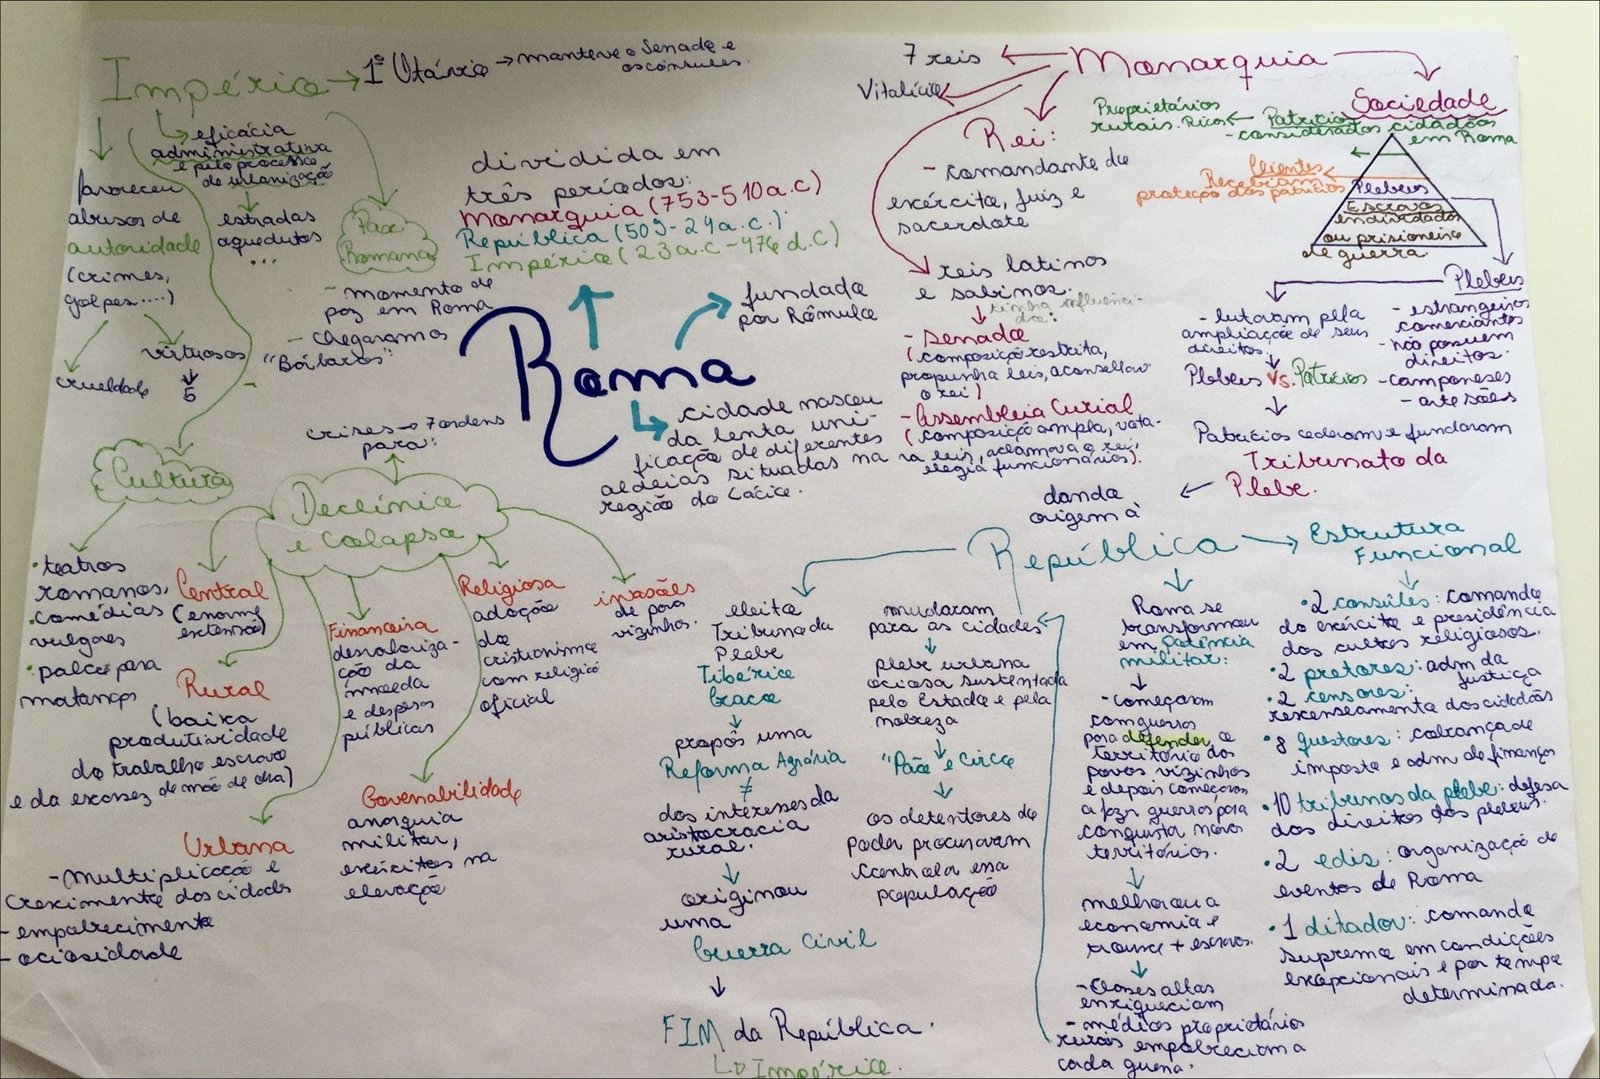 Império → 1º Otávio → manteve o Senado e
os cônsules.
eficácia
administrativa
e pelo processo
de urbanização
estradas
aquedutos
...
favoreceu
abusos de
autoridade
(crimes,
golpes....)
crueldade
virtuosos
5
Pax
Romana
- momento de
paz em Roma
- chegaram os
"Bárbaros"
Cultura
• teatros
romanos,
• comédias
vulgares
• palco para
matanças
dividida em
três períodos:
Monarquia (753-510 a.c)
República (509-27 a.c.)
Império (23 a.c - 476 d.C)
Roma
fundada
por Rômulo
cidade nasceu
da lenta uni-
ficação de diferentes
aldeias situadas na
região do Lácio.
crises → 7 ordens
para:
Declínio
e Colapso
Central
(enorme
extensão)
Rural
(baixa
produtividade
do trabalho escravo
e da escassez de mão de obra)
Urbana
- multiplicação e
crescimento das cidades
- empobrecimento
- ociosidade
Financeira
desvaloriza-
ção da
moeda
e despesas
públicas
Governabilidade
anarquia
militar,
exércitos na
elevação
Religiosa
adoção
do
cristianismo
com religião
oficial
invasões
de povos
vizinhos.
Monarquia
7 reis
Vitalício
Rei:
- comandante do
exército, juiz e
sacerdote
reis latinos
e sabinos.
tinha influência
do:
- Senado
(composição restrita,
propunha leis, aconselhava
o rei)
- Assembleia Curial
(composição ampla, vota-
va leis, aclamava o rei,
elegia funcionários).
Sociedade
Patrícios
- considerados cidadãos
em Roma
Proprietários
rurais. Ricos
Clientes
Recebiam
proteção dos patrícios
Plebeus
Escravos
endividados
ou prisioneiro
de guerra
Plebeus
- estrangeiros
comerciantes
- não possuem
direitos.
- camponeses
- artesãos
- lutaram pela
ampliação de seus
direitos
Plebeus vs. Patrícios
Patrícios cederam e fundaram
Tribunato da
Plebe.
dando
origem à
República
eleito
Tribuno da
Plebe
Tibério
Graco
propôs uma
Reforma Agrária
≠
dos interesses da
aristocracia
rural.
originou
uma
Guerra Civil
FIM da República.
Império.
mudaram
para as cidades
plebe urbana
ociosa sustentada
pelo Estado e pela
nobreza
"Pão e Circo"
os detentores do
poder procuravam
controlar essa
população
Roma se
transformou
em potência
militar:
- começaram
com guerras
para defender o
território dos
povos vizinhos
e depois começaram
a fazer guerras para
conquistar novos
territórios.
melhorou a
economia e
trouxe + escravos.
- Classes altas
enriqueciam
- médios proprietários
rurais empobreciam a
cada guerra.
Estrutura
Funcional
• 2 consules: comando
do exército e presidência
dos cultos religiosos.
• 2 pretores: adm da
justiça
• 2 censores:
recenseamento dos cidadãos
• 8 questores: cobrança de
imposto e adm de finanças
• 10 tribunos da plebe: defesa
dos direitos dos plebeus.
• 2 edis: organização de
eventos de Roma
• 1 ditador: comando
supremo em condições
excepcionais e por tempo
determinado.